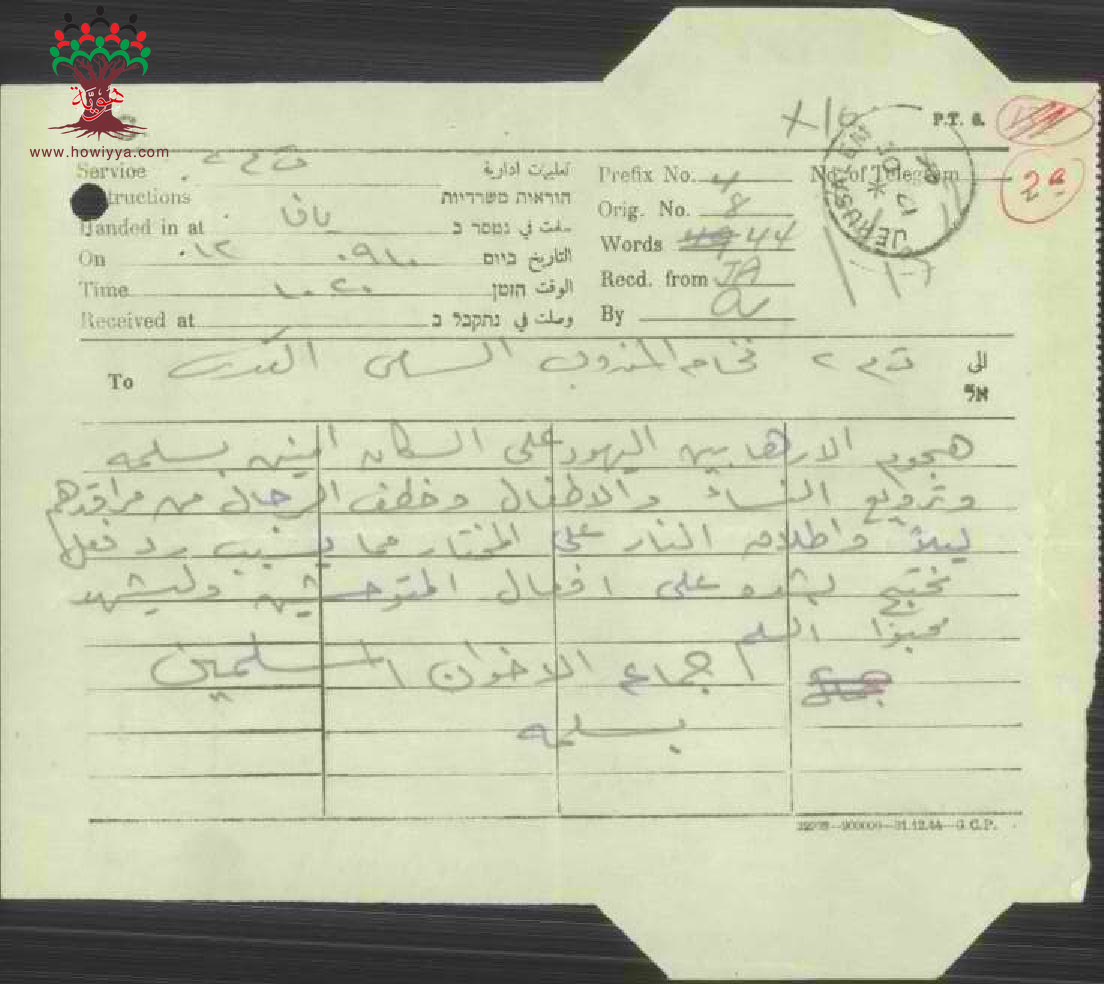 هوية
www.howiyya.com
P.T. 6.
JERUSALEM
2a
Service تعليمات ادارية
Instructions הוראות משרדיות
Handed in at يافا سلمت في נמסר ב
On التاريخ ביום
Time ١٠٢٠ الوقت הזמן
Received at وصلت في נתקבל ב
Prefix No. 4 No. of Telegram
Orig. No. 8
Words 44
Recd. from JA
By
To فخامة المندوب السامي القدس الى אל
هجوم الارهابيين اليهود على السكان امنين بسلمه
وترويع النساء والاطفال وخطف الرجال من مراقدهم
ليلا واطلاق النار على المختار مما يسبب رد فعل
نحتج بشده على افعال المتوحشين وليشهد
محبوا السلم
جماعة الاخوان المسلمين
بسلمه
900000—31.12.44—G.C.P.